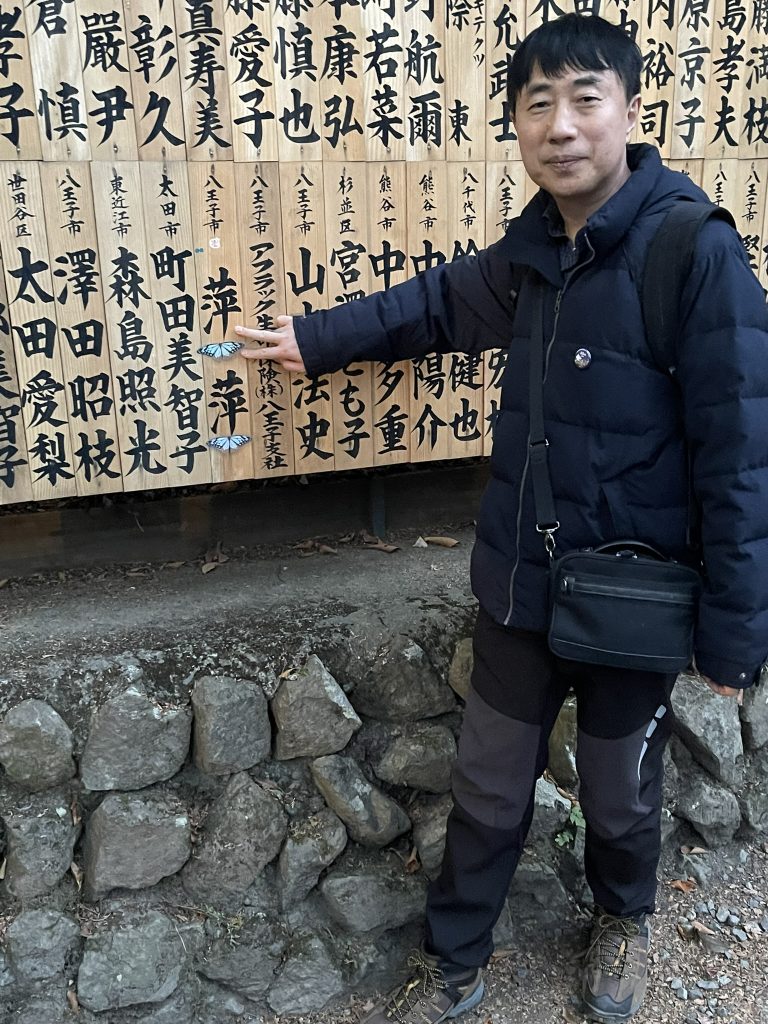 満枝
島孝夫
原京子
内裕司
木
武士
東
航爾
若菜
康弘
慎也
藤愛子
真寿美
彰久
嚴尹
倉慎
孝子
八王子市
八王子市
八王子市
八千代市 健也
熊谷市 中 陽介
熊谷市 中 多重
杉並区 宮澤 も子
八王子市 山 法史
八王子市 アフラック生 保険(株)八王子支社
八王子市 萍 萍
太田市 町田美智子
東近江市 森島照光
八王子市 澤田昭枝
世田谷区 太田愛梨
智子